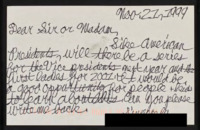 Nov 21, 1999
Dear Sir or Madam,
Like American
Presidents, will there be a series
for the Vice presidents next year and
first ladies for 2001? It would be
a good opportunity for people kids
to learn about
write me back.